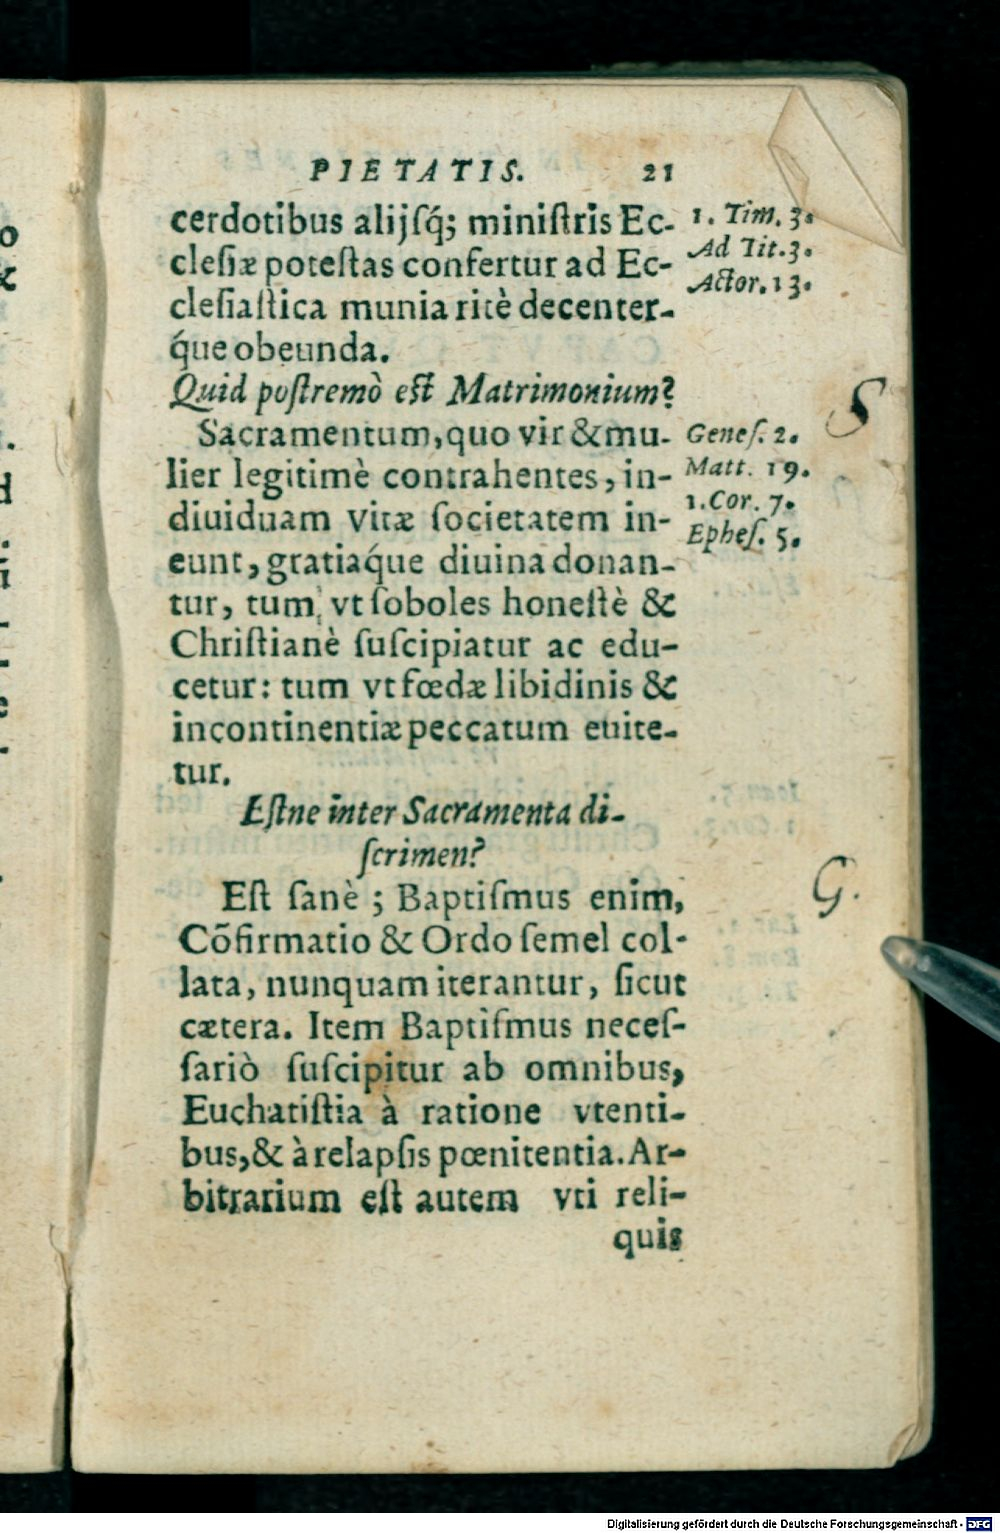 PIETATIS. 21
cerdotibus alijſq́; miniſtris Ec-
cleſiæ poteſtas confertur ad Ec-
cleſiaſtica munia ritè decenter-
q́ue obeunda.
1. Tim. 3.
Ad Tit. 3.
Actor. 13.
Quid poſtremò eſt Matrimonium?
S
Sacramentum, quo vir & mu-
lier legitimè contrahentes, in-
diuiduam vitæ ſocietatem in-
eunt, gratiaq́ue diuina donan-
tur, tum, vt ſoboles honeſtè &
Chriſtianè ſuſcipiatur ac edu-
cetur: tum vt fœdæ libidinis &
incontinentiæ peccatum euite-
tur.
Geneſ. 2.
Matt. 19.
1. Cor. 7.
Epheſ. 5.
Eſtne inter Sacramenta di-
ſcrimen?
G.
Eſt ſanè ; Baptiſmus enim,
Cõfirmatio & Ordo ſemel col-
lata, nunquam iterantur, ſicut
cætera. Item Baptiſmus neceſ-
ſariò ſuſcipitur ab omnibus,
Euchatiſtia à ratione vtenti-
bus, & à relapſis pœnitentia. Ar-
bitrarium eſt autem vti reli-
quis
Digitalisierung gefördert durch die Deutsche Forschungsgemeinschaft - DFG